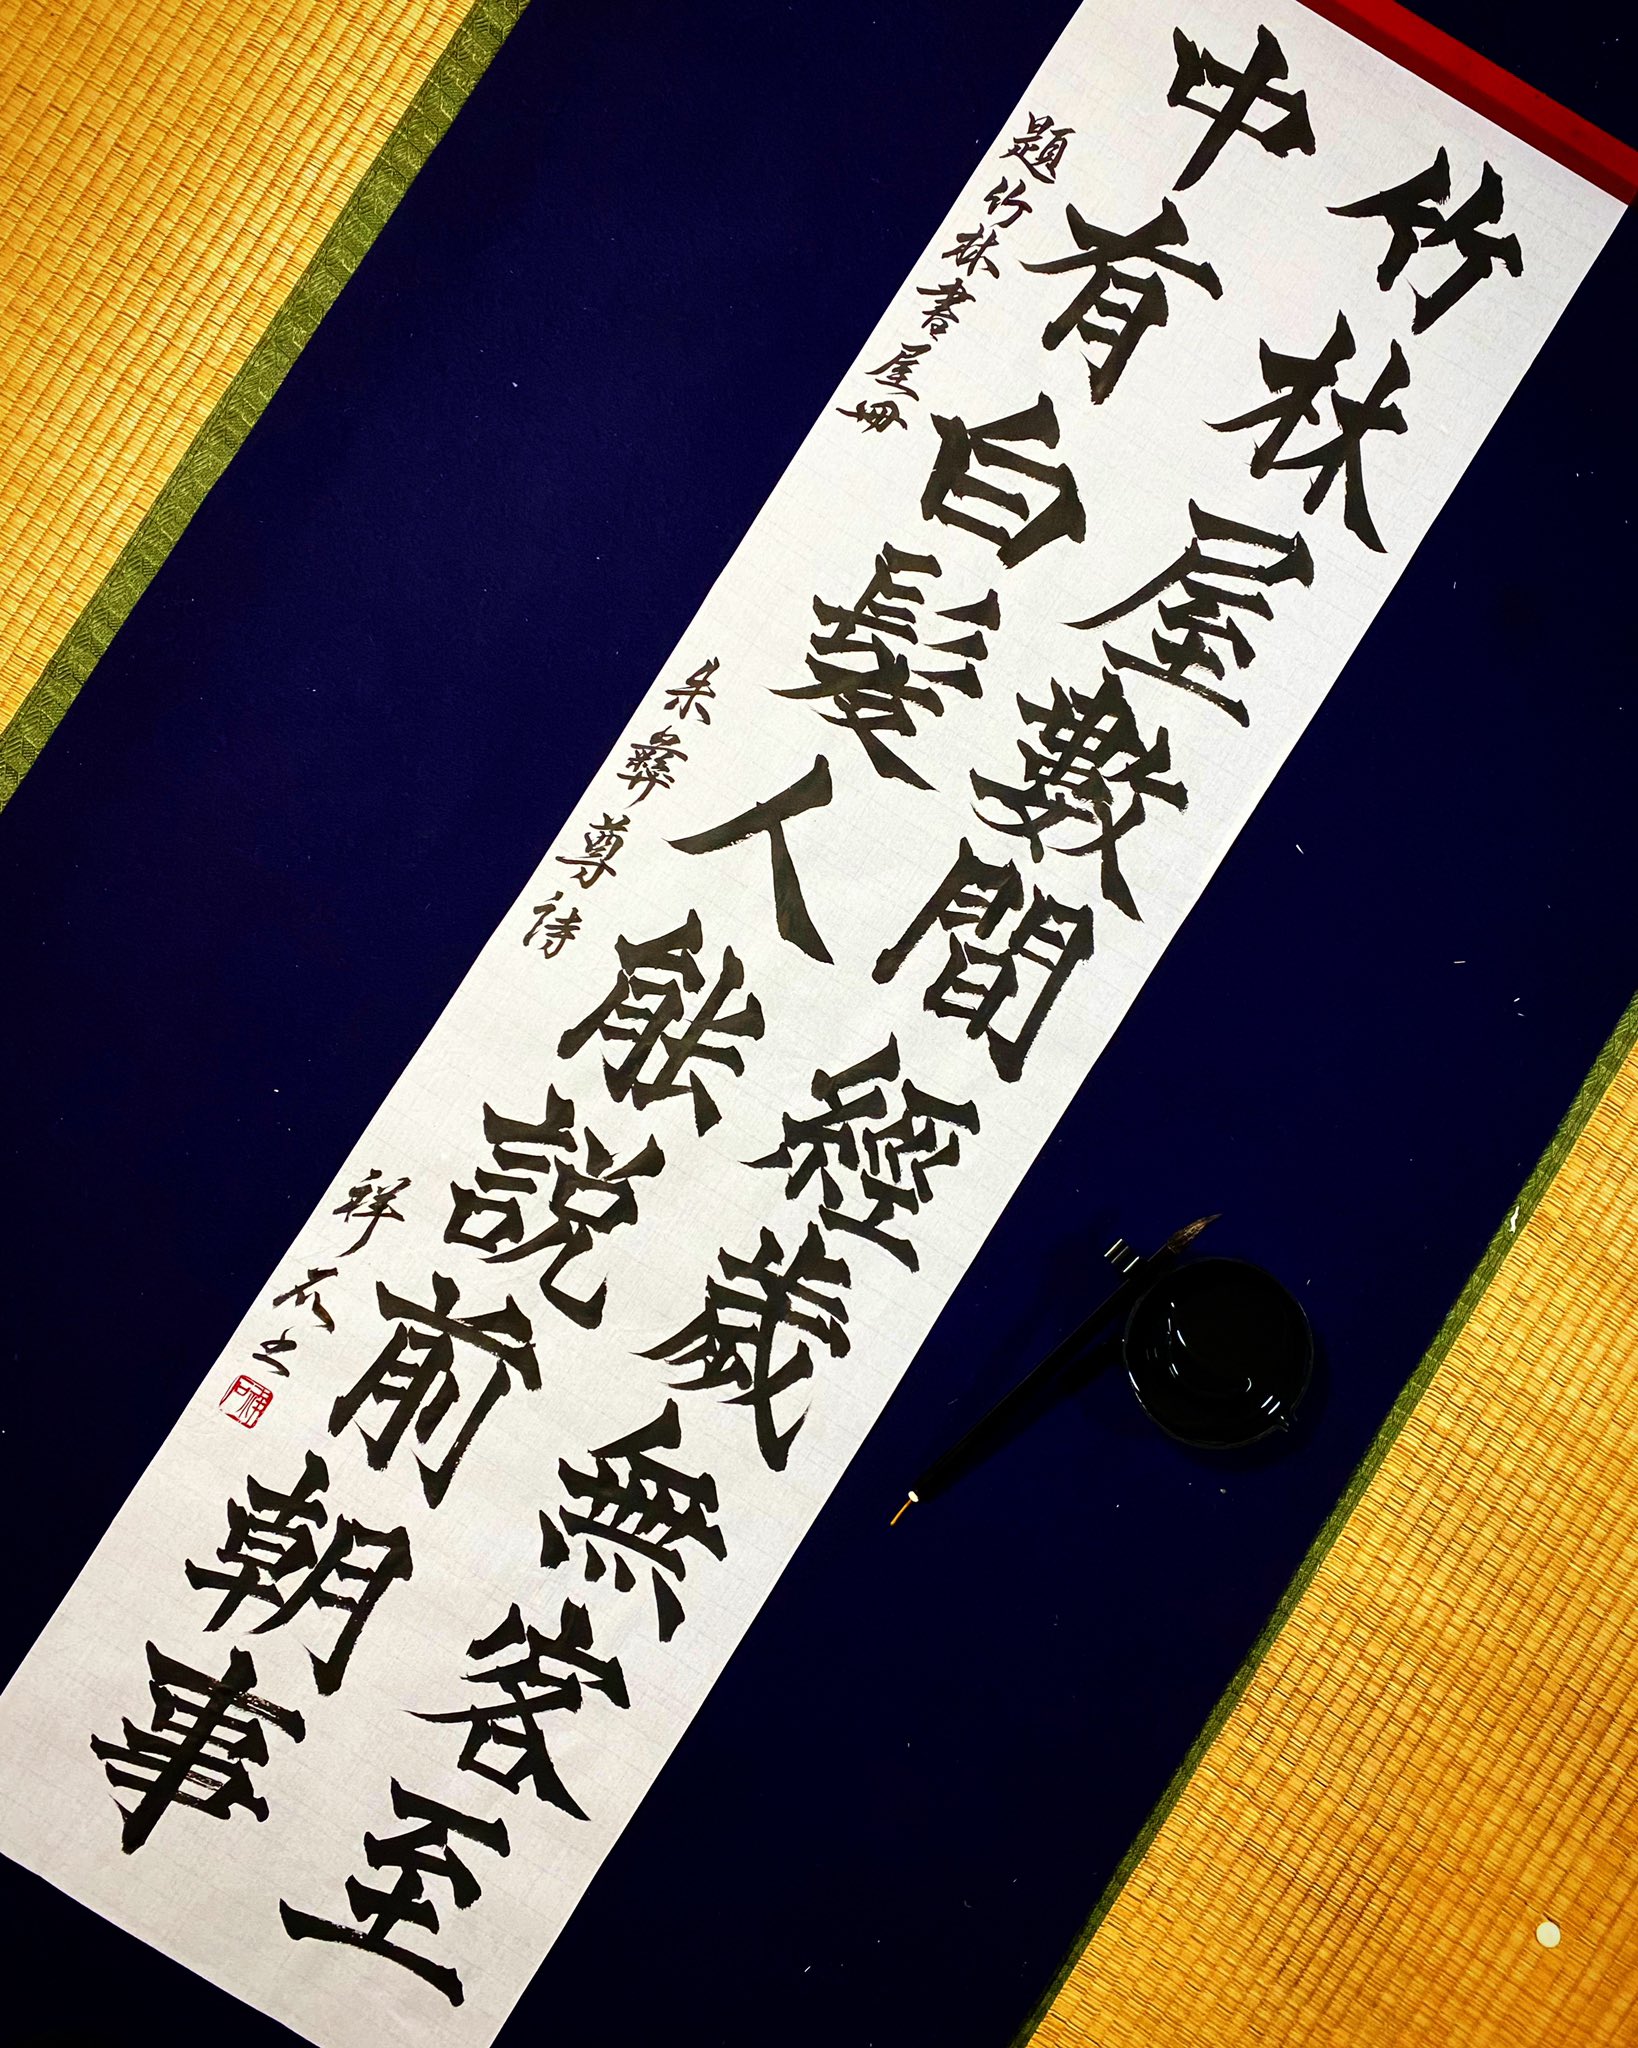 竹林屋數間經歲無客至
中有白髮人能説前朝事
題竹林書屋冊
朱彝尊詩
祥石土
祥石